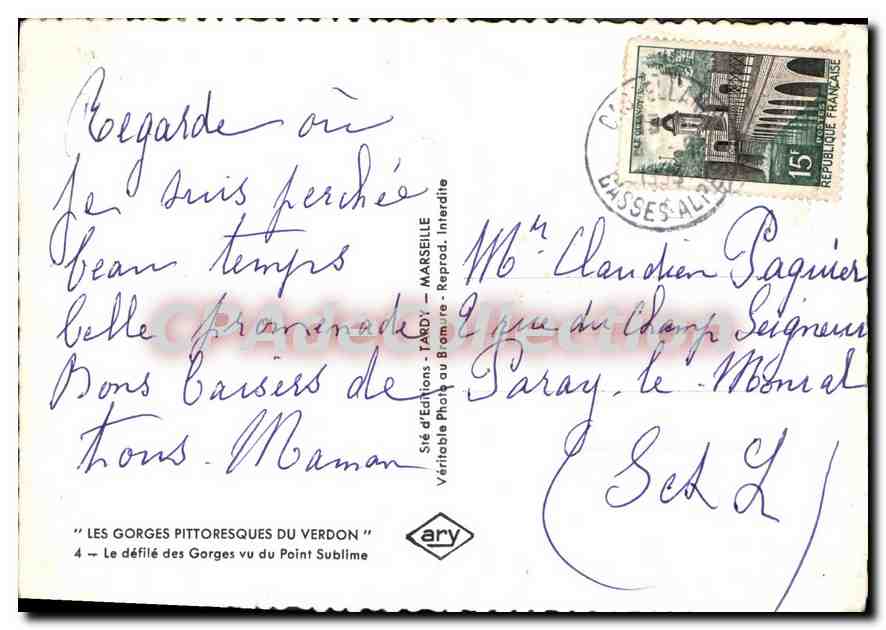 Regarde où
Je suis perchée
beau temps
belle promenade
Bons baisers de
tous. Maman
" LES GORGES PITTORESQUES DU VERDON "
4 — Le défilé des Gorges vu du Point Sublime
ary
Sté d'Editions - TARDY — MARSEILLE
Véritable Photo au Bromure - Reprod. Interdite
15F
POSTES
REPUBLIQUE FRANÇAISE
BASSES-ALPES
Mr Claudien Paquier
2 rue du Champ Seigneur
Paray-le-Monial
(S et L)
CPAdeCollection